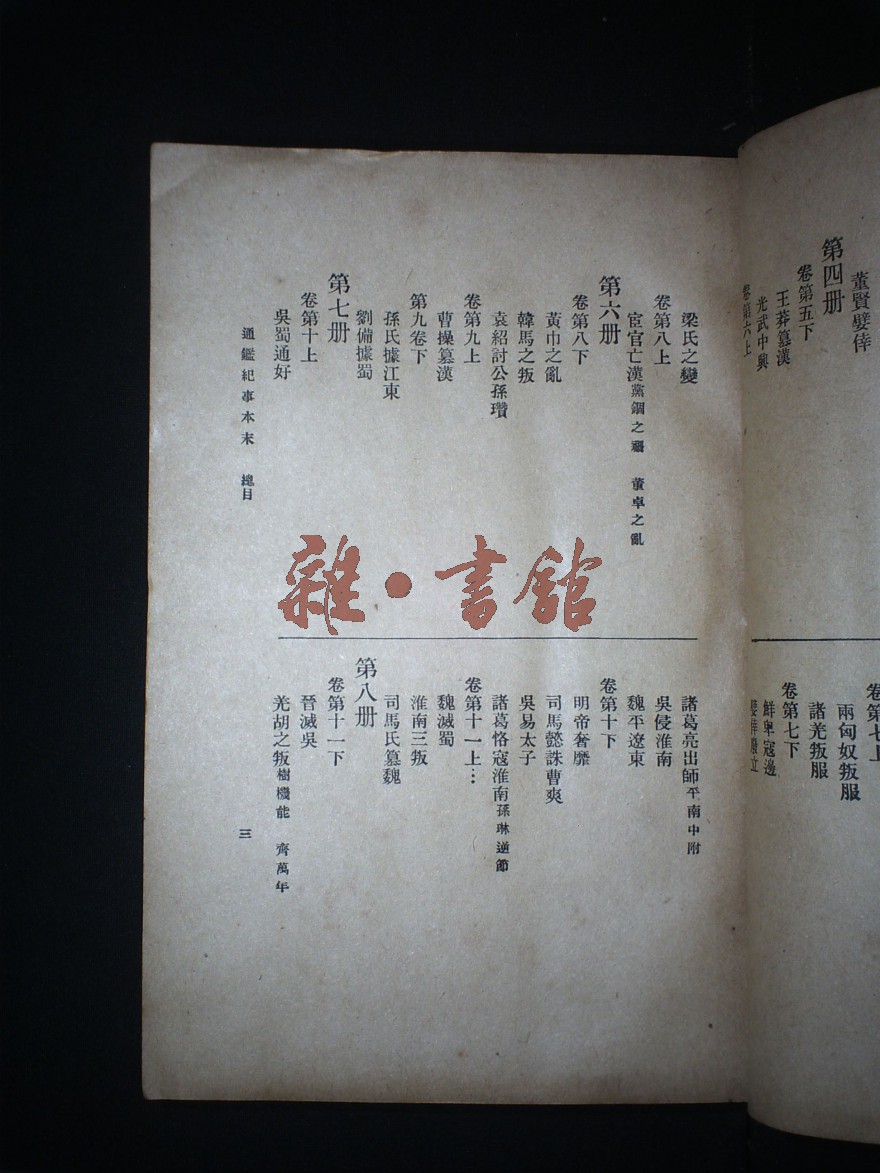 董賢嬖倖
第四册
卷第五下
王莽篡漢
光武中興
卷第六上
卷第七上
兩匈奴叛服
諸羌叛服
卷第七下
鮮卑寇邊
嬖倖廢立
梁氏之變
卷第八上
宦官亡漢黨錮之禍 董卓之亂
第六册
卷第八下
黃巾之亂
韓馬之叛
袁紹討公孫瓚
卷第九上
曹操篡漢
第九卷下
孫氏據江東
劉備據蜀
第七册
卷第十上
吳蜀通好
諸葛亮出師平南中附
吳侵淮南
魏平遼東
卷第十下
明帝奢靡
司馬懿誅曹爽
吳易太子
諸葛恪寇淮南孫琳逆節
卷第十一上…
魏滅蜀
淮南三叛
司馬氏篡魏
第八册
卷第十一下
晉滅吳
羌胡之叛樹機能 齊萬年
通鑑紀事本末 總目
三
雜·書館